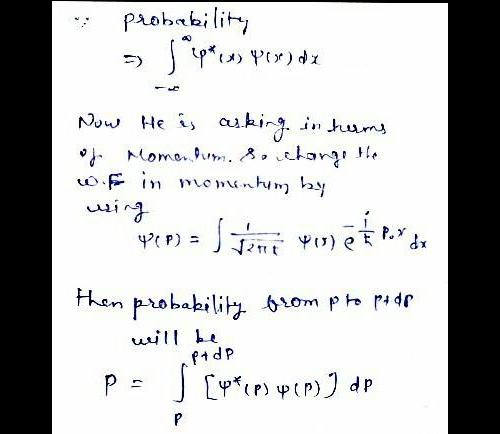 ∵ probability
⇒ ∫_{-∞}^{∞} ψ*(x) ψ(x) dx
Now He is asking in terms
of Momentum. So change the
W.F in momentum by
using
ψ(P) = ∫ 1/√2πℏ ψ(x) e^{-i/ℏ p.x} dx
then probability from p to p+dp
will be
P = ∫_{P}^{p+dp} [ψ*(p) ψ(p)] dp